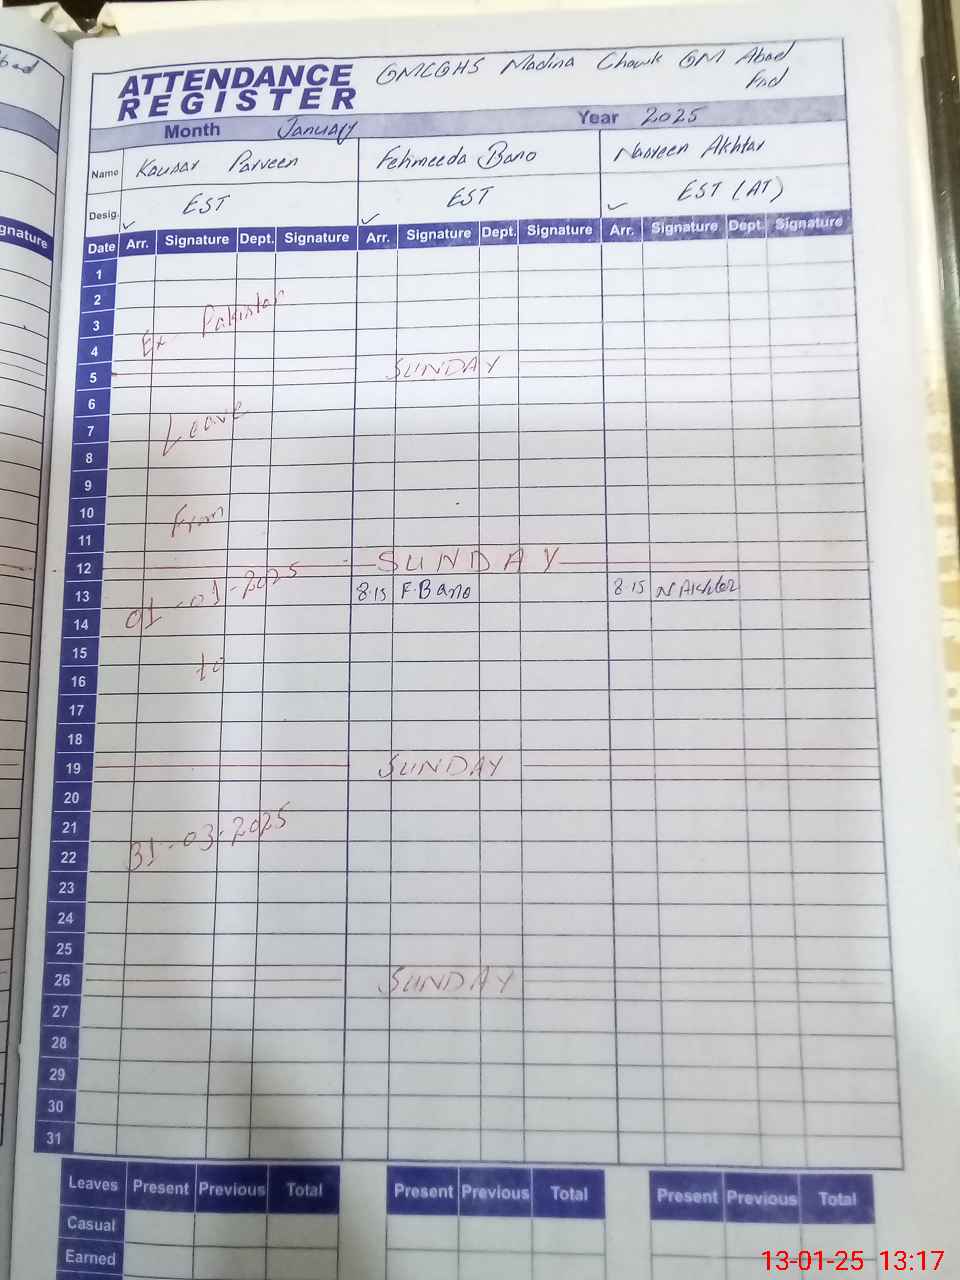 bad
gnature
ATTENDANCE REGISTER
GMCGHS Madina Chowk GM Abad
Fsd
Month January Year 2025
Name Kausar Parveen Fehmeeda Bano Nasreen Akhtar
Desig. EST EST EST (AT)
Date Arr. Signature Dept. Signature Arr. Signature Dept. Signature Arr. Signature Dept. Signature
1
2
3
Ex Pakistan
4
5 SUNDAY
6
7 Leave
8
9
10
From
11
12 SUNDAY
13 8.15 F.Bano 8.15 N Akhter
01-01-2025
14
15
to
16
17
18
19 SUNDAY
20
21
31-03-2025
22
23
24
25
26 SUNDAY
27
28
29
30
31
Leaves Present Previous Total Present Previous Total Present Previous Total
Casual
Earned
13-01-25 13:17